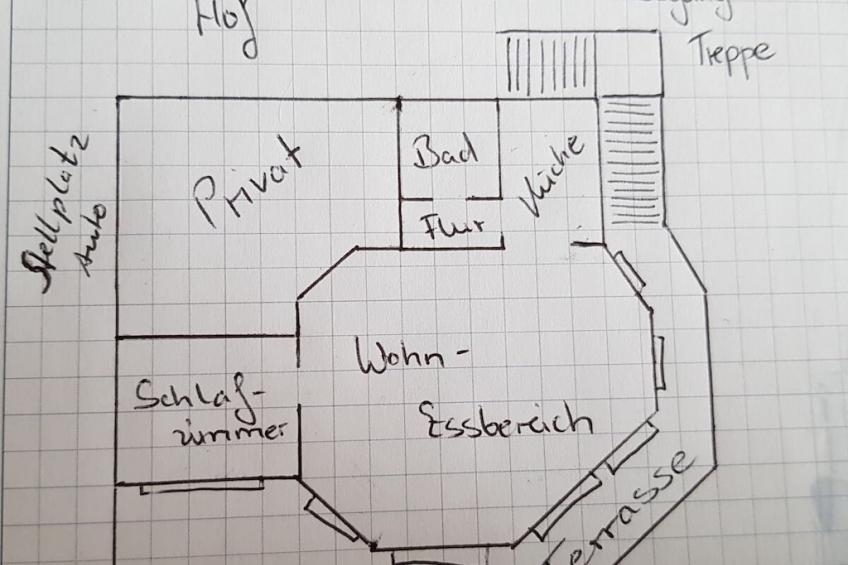 Hof
Treppe
Stellplatz
Auto
Privat
Bad
Küche
Flur
Wohn-
Essbereich
Schlaf-
zimmer
Terrasse